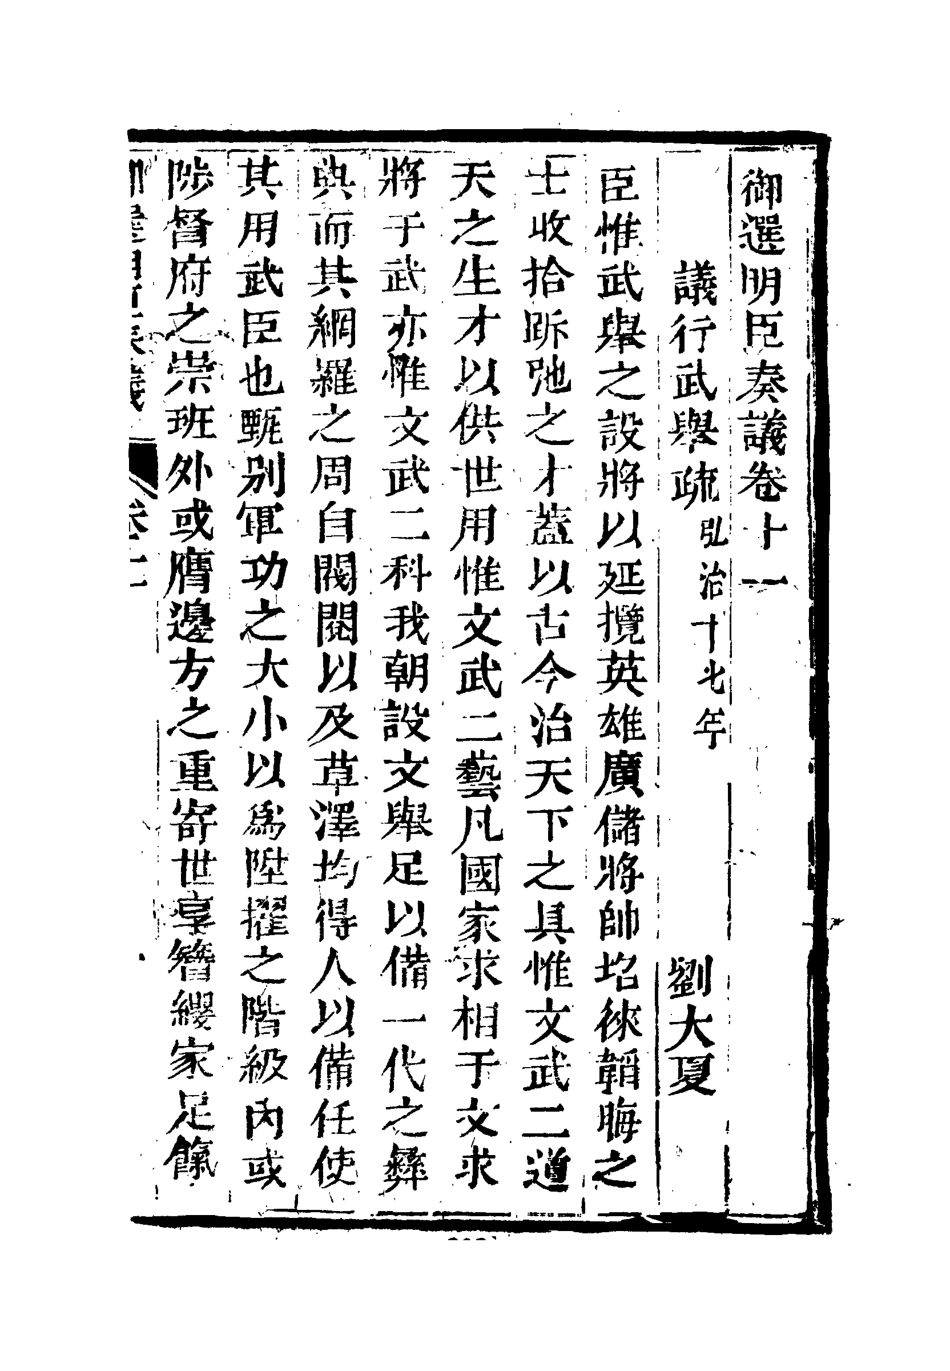 御選明臣奏議卷十一
議行武舉疏弘治十七年 劉大夏
臣惟武舉之設將以延攬英雄廣儲將帥招徠韜晦之
士收拾跅弛之才蓋以古今治天下之具惟文武二道
天之生才以供世用惟文武二藝凡國家求相于文求
將于武亦惟文武二科我朝設文舉足以備一代之彝
典而其網羅之周自閥閱以及草澤均得人以備任使
其用武臣也甄别軍功之大小以為陞擢之階級內或
陟督府之崇班外或膺邊方之重寄世享簪纓家足餼